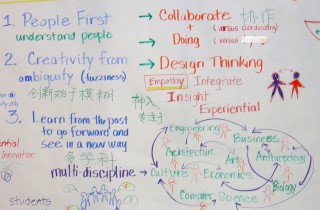 1. People First
understand people
→ Collaborate 协作
+ (versus coordinating)
→ Doing (versus
2. Creativity from
ambiguity (fuzziness)
创新始于模糊
→ Design Thinking
Empathy Integrate
Insight
Experiential
3. Learn from the past
to go forward and
see in a new way
多学科
multi-discipline → Culture
Engineering
Business
Architecture
Art
Anthropology
Economics
Biology
Computer
Science
Innovation
students